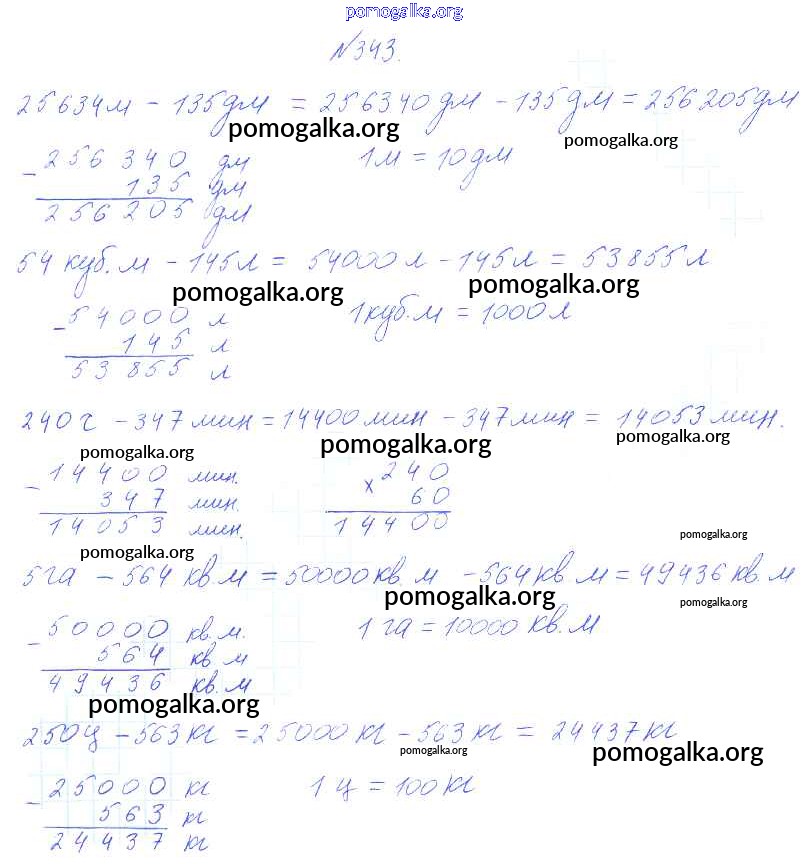 pomogalka.org
№343.
25634м - 135дм = 256340дм - 135дм = 256205дм
pomogalka.org pomogalka.org
- 256340 дм 1м = 10дм
135 дм
256205 дм
54 куб.м - 145л = 54000л - 145л = 53855л
pomogalka.org pomogalka.org
- 54000 л 1куб.м = 1000л
145 л
53855 л
240ч - 347мин = 14400мин - 347мин = 14053мин.
pomogalka.org pomogalka.org pomogalka.org
- 14400 мин. × 240
347 мин. 60
14053 мин. 14400
pomogalka.org pomogalka.org
5га - 564кв.м = 50000кв.м - 564кв.м = 49436кв.м
pomogalka.org pomogalka.org
- 50000 кв.м. 1га = 10000кв.м
564 кв.м
49436 кв.м
pomogalka.org
250ц - 563кг = 25000кг - 563кг = 24437кг
pomogalka.org pomogalka.org
- 25000 кг 1ц = 100кг
563 кг
24437 кг